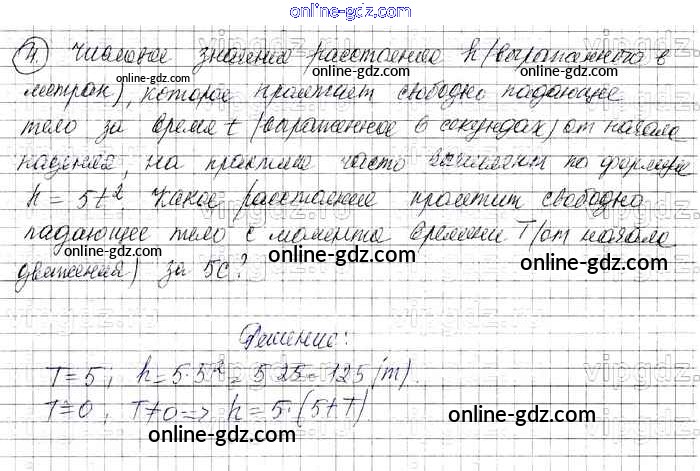 online-gdz.com
4. Числовое значение расстояния h (выраженного в
метрах), которое пролетает свободно падающее
тело за время t (выраженное в секундах) от начала
падения, на практике часто вычисляют по формуле
h = 5t² Какое расстояние пролетит свободно
падающее тело с момента времени T (от начала
движения) за 5с?
Решение:
T=5; h=5·5²=5·25=125 (m).
T≠0; T≠0 => h=5·(5+T)
online-gdz.com
online-gdz.com
online-gdz.com
online-gdz.com
online-gdz.com
online-gdz.com
online-gdz.com
online-gdz.com
online-gdz.com